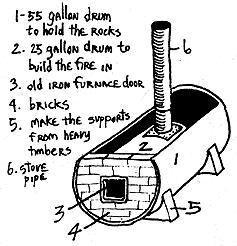 1-55 gallon drum
to hold the rocks
2. 25 gallon drum to
build the fire in
3. old iron furnace door
4. bricks
5. make the supports
from heavy
timbers
6. stove
pipe
6
2
1
3
4
5